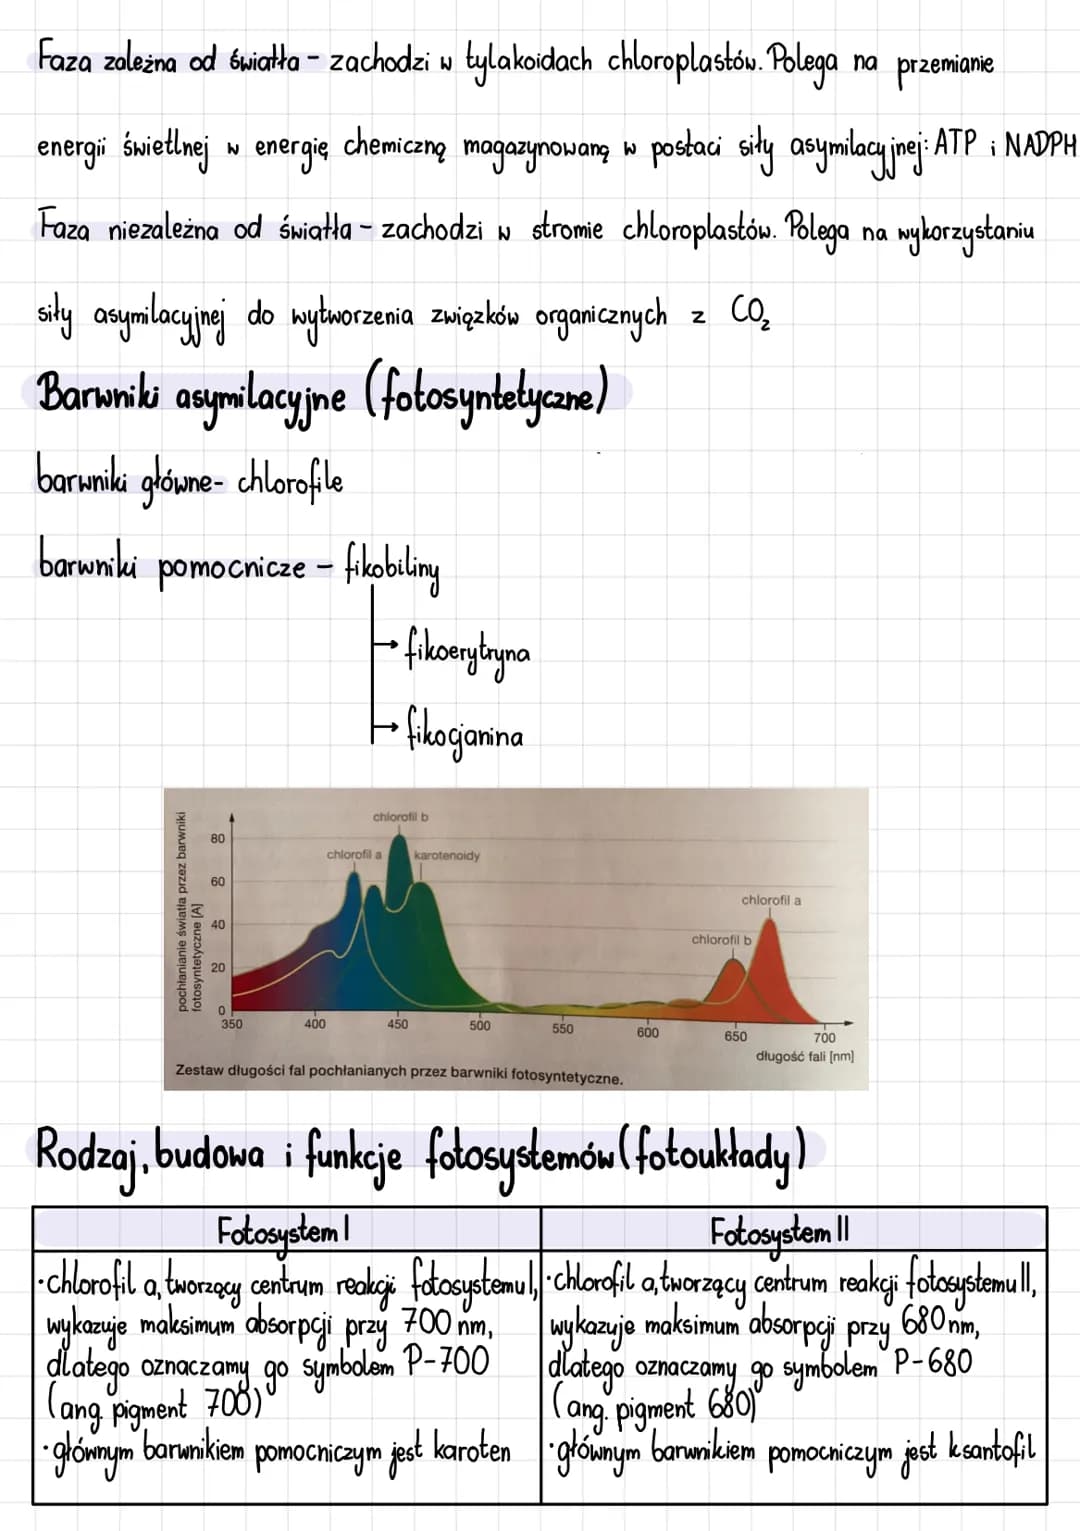 Faza zależna od światła - zachodzi w tylakoidach chloroplastów. Polega na przemianie
energii świetlnej w energię chemiczną magazynowaną w postaci siły asymilacyjnej: ATP i NADPH
Faza niezależna od światła - zachodzi w stromie chloroplastów. Polega na wykorzystaniu
siły asymilacyjnej do wytworzenia związków organicznych z CO₂
Barwniki asymilacyjne (fotosyntetyczne)
barwniki główne- chlorofile
barwniki pomocnicze - fikobiliny
→ fikoerytryna
→ fikocjanina
pochłanianie światła przez barwniki
fotosyntetyczne [A]
80
60
40
20
0
chlorofil b
chlorofil a
karotenoidy
chlorofil a
chlorofil b
350 400 450 500 550 600 650 700
długość fali [nm]
Zestaw długości fal pochłanianych przez barwniki fotosyntetyczne.
Rodzaj, budowa i funkcje fotosystemów (fotoukłady)
Fotosystem I
•chlorofil a, tworzący centrum reakcji fotosystemu I,
wykazuje maksimum absorpcji przy 700 nm,
dlatego oznaczamy go symbolem P-700
(ang. pigment 700)
•głównym barwnikiem pomocniczym jest karoten
Fotosystem II
•chlorofil a, tworzący centrum reakcji fotosystemu II,
wykazuje maksimum absorpcji przy 680 nm,
dlatego oznaczamy go symbolem P-680
(ang. pigment 680)
•głównym barwnikiem pomocniczym jest ksantofil